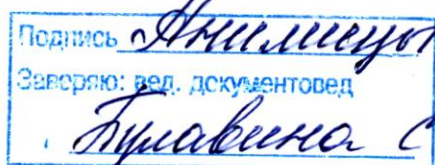 Подпись Анимицы
Заверяю: вед. документовед
Булавина С